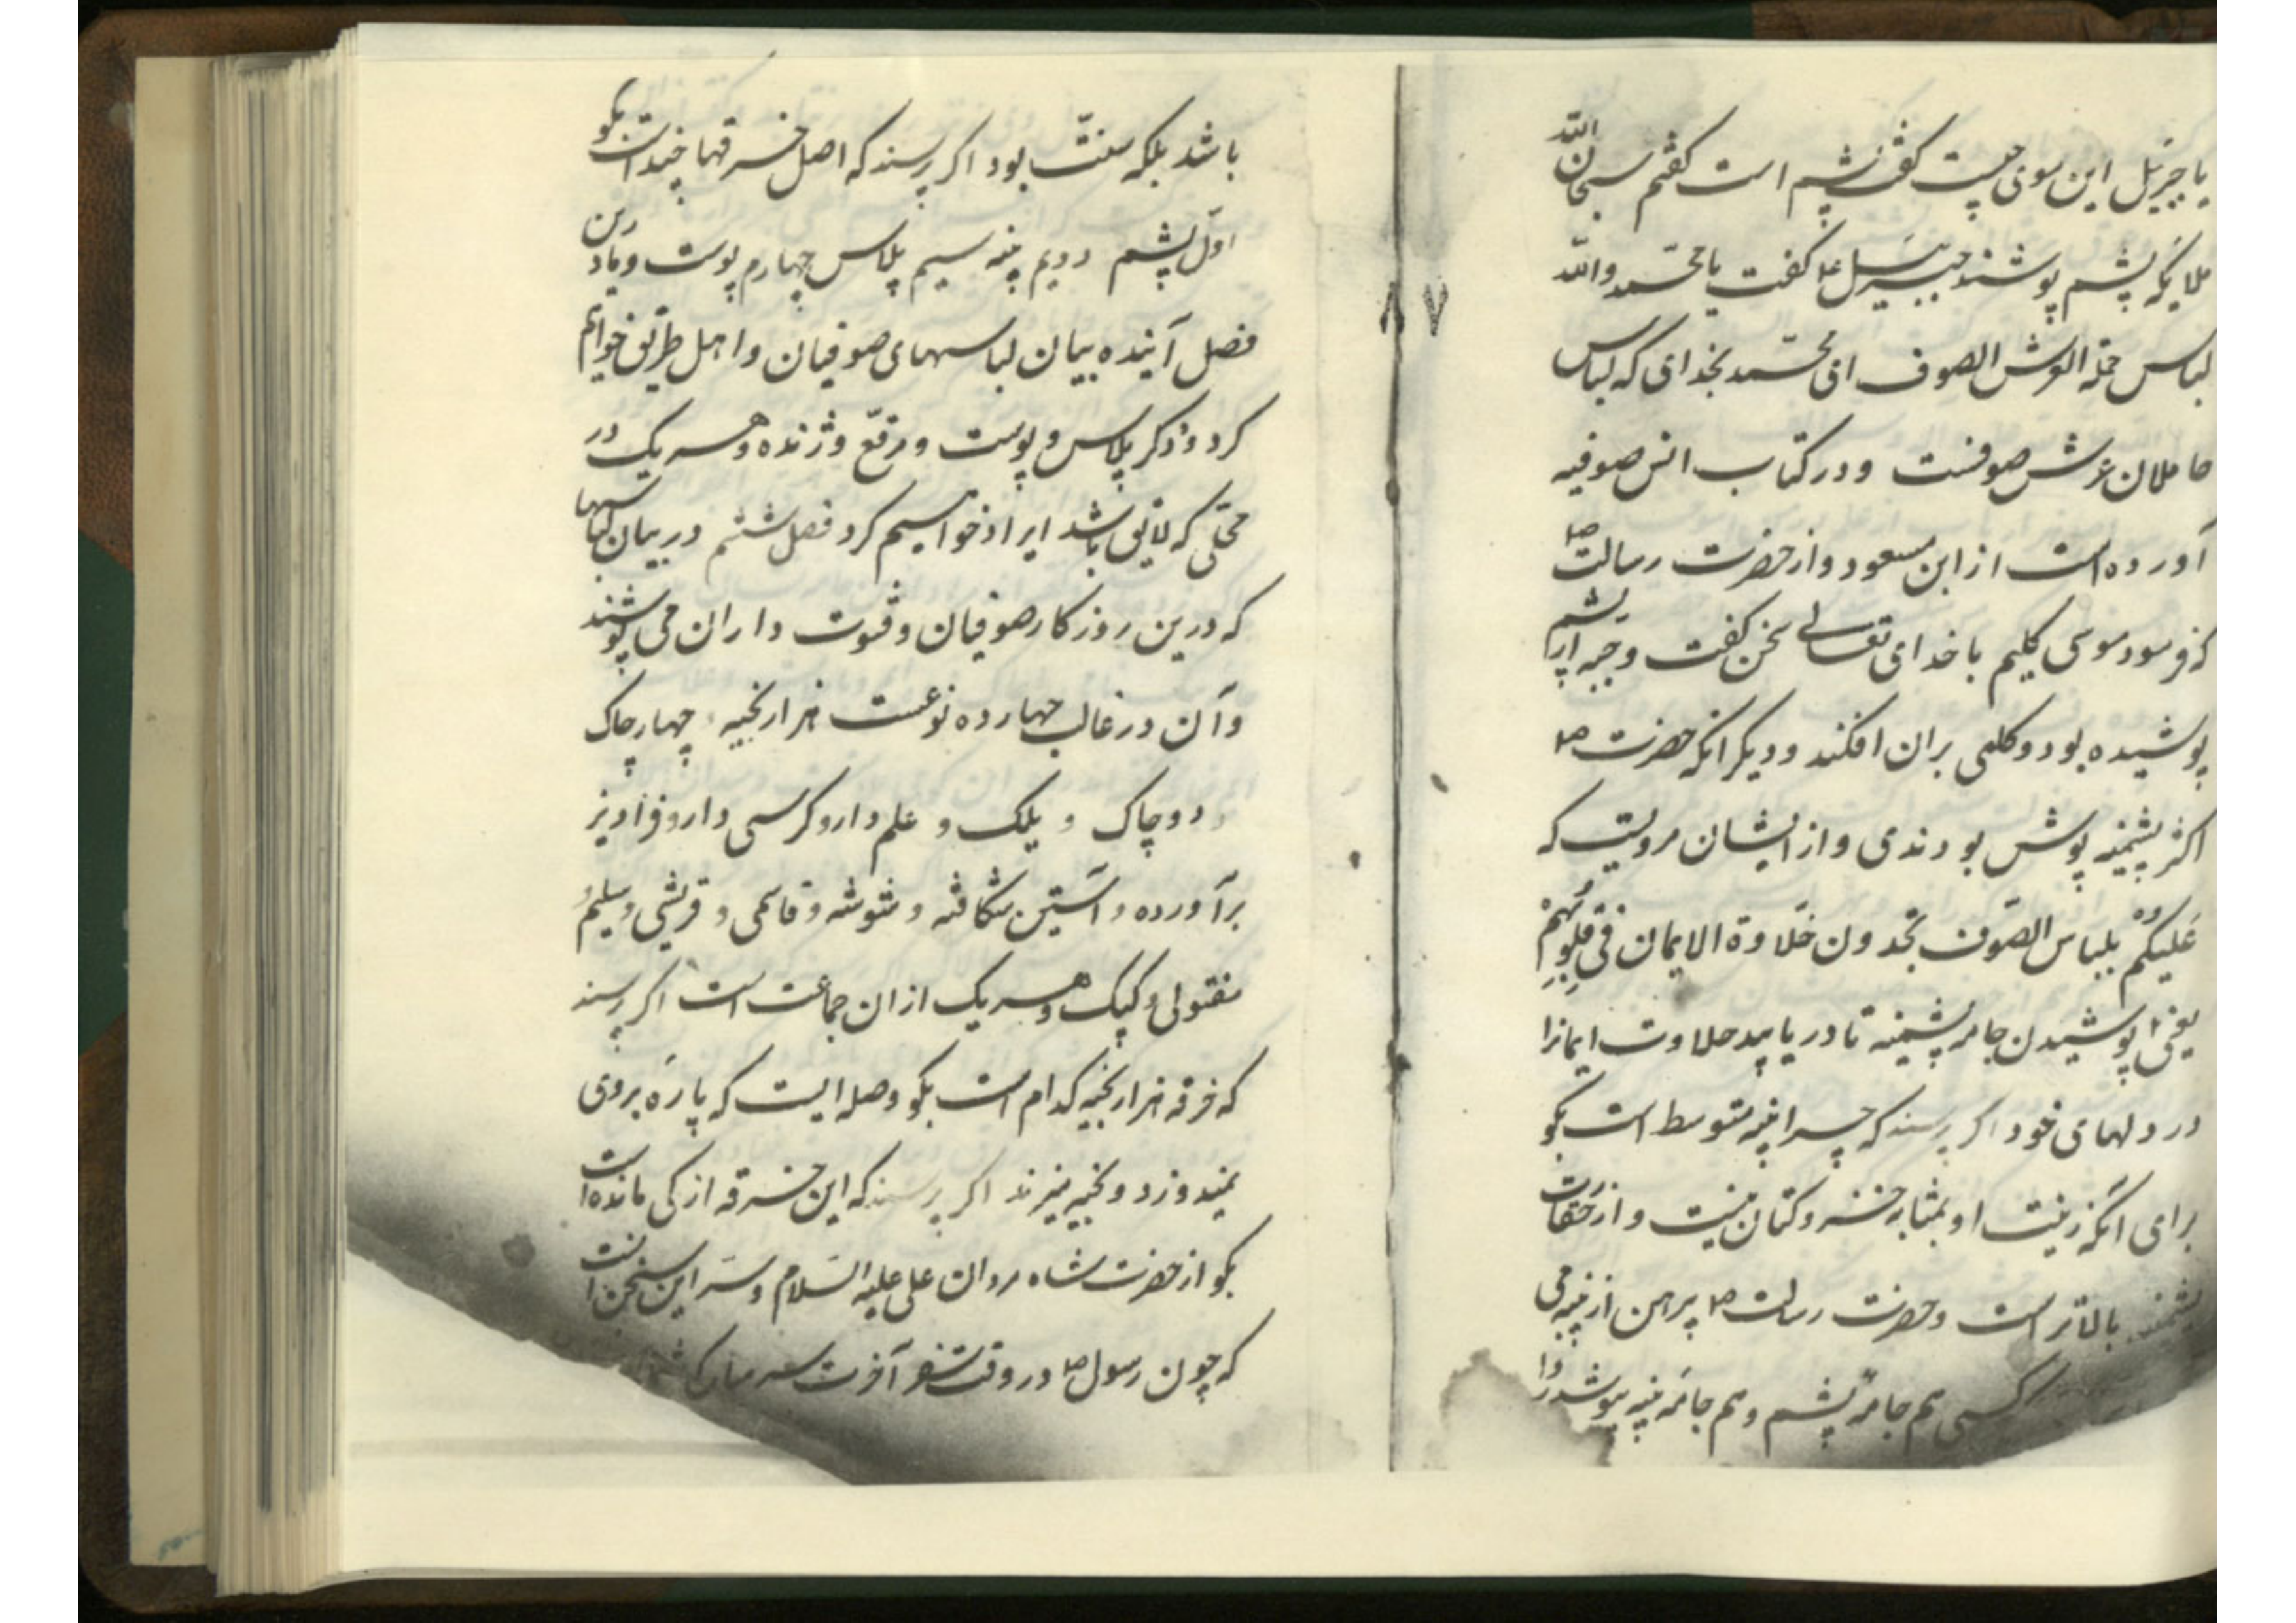 یا جبرئیل این موی چیست گفت پشم است گفتم سبحان الله
ملایکه پشم پوشند جبرئیل علا گفت یا محمد والله
لباس حملة العرش الصوف ای محمد بخدای که لباس
حاملان عرش صوفست و در کتاب انس صوفیه
آورده است از ابن مسعود و از حضرت رسالت ص
که فرمود موسی کلیم با خدای تعالی سخن گفت و جبه از پشم
پوشیده بود و کلمی بران افکند و دیگر انکه حضرت ص
اکثر پشمینه پوش بودندی و از ایشان مرویست که
عَلیکُم بلباس الصّوف تجدون حَلاوة الایمان فی قلوبِهم
یعنی پوشیدن جامه پشمینه تا دریابید حلاوت ایمانرا
در دلهای خود اکر پرسند که چرا پنبه متوسط است بکو
برای آنکه زینت او بمثابه خز و کتان نیست و از
پشمند بالاتر است و حضرت رسالت ص پیرهن از پنبه می
کسی هم جامهٔ پشم و هم جامهٔ پنبه پوشد روا
٨٧
باشد بلکه سنّت بود اکر پرسند که اصل خرقها چند است بکو
اوّل پشم دویم پنبه سیم پلاس چهارم پوست و ما درین
فصل آینده بیان لباسهای صوفیان و اهل طریق خواهیم
کرد و ذکر پلاس و پوست و مرقّع و ژنده و هر یک در
محلّی که لایق باشد ایراد خواهیم کرد فصل ششم در بیان لباسها
که درین روزکار صوفیان و فتوت داران می پوشند
و آن در غالب چهارده نوعست هزار بخیه چهار چاک
و دو چاک و یلک و علم دار و کرسی دار و فراویز
برآورده و آستین شکافته و شوشه و قاسمی و قریشی و سلیمی و
مفتولی و کپک و هر یک از ان جماعت است اکر پرسند
که خرقه هزار بخیه کدام است بکو وصله ایست که پارهٔ بروی
میدوزد و بخیه میزند اکر پرسند که این خرقه از کی مانده است
بکو از حضرت شاه مردان علی علیه السلام و سرّ این سخن آنست
که چون رسول ص در وقت سفر آخرت سر مبارک